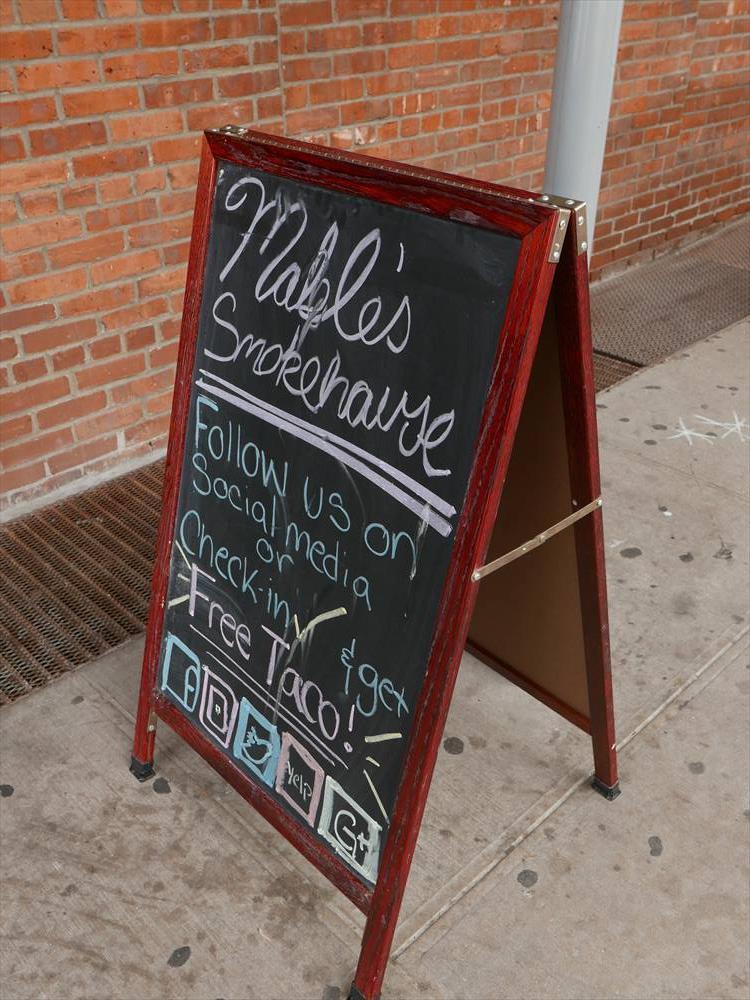 Mable's
Smokehouse
Follow us on
Social media
or
Check-in & get
Free Taco!
f
yelp
G+